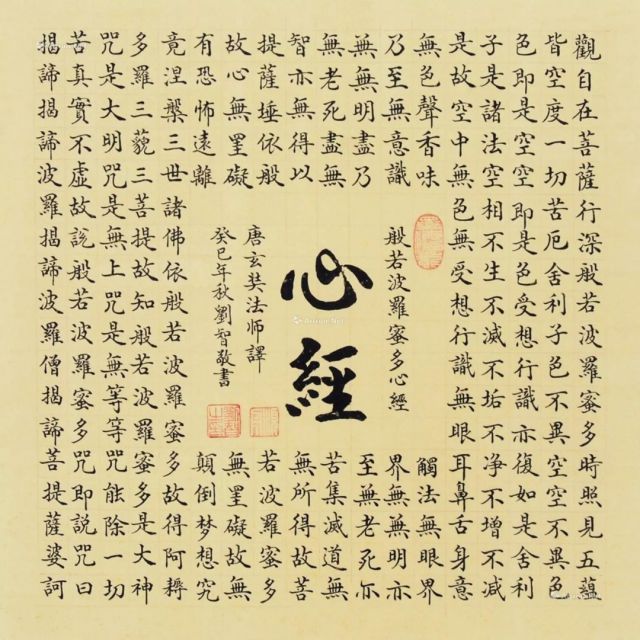 觀自在菩薩行深般若波羅蜜多時照見五蘊
皆空度一切苦厄舍利子色不異空空不異色
色即是空空即是色受想行識亦復如是舍利
子是諸法空相不生不滅不垢不净不增不减
是故空中無色無受想行識無眼耳鼻舌身意
無色聲香味
觸法無眼界
乃至無意識
界無無明亦
無無明盡乃
至無老死亦
無老死盡無
苦集滅道無
智亦無得以
無所得故菩
提薩埵依般
若波羅蜜多
故心無罣礙
無罣礙故無
有恐怖遠離
顛倒梦想究
竟涅槃三世諸佛依般若波羅蜜多故得阿耨
多羅三藐三菩提故知般若波羅蜜多是大神
咒是大明咒是無上咒是無等等咒能除一切
苦真實不虛故說般若波羅蜜多咒即説咒曰
揭諦揭諦波羅揭諦波羅僧揭諦菩提薩婆訶
般若波羅蜜多心經
心經
唐玄奘法師譯
癸巳年秋劉智敬書